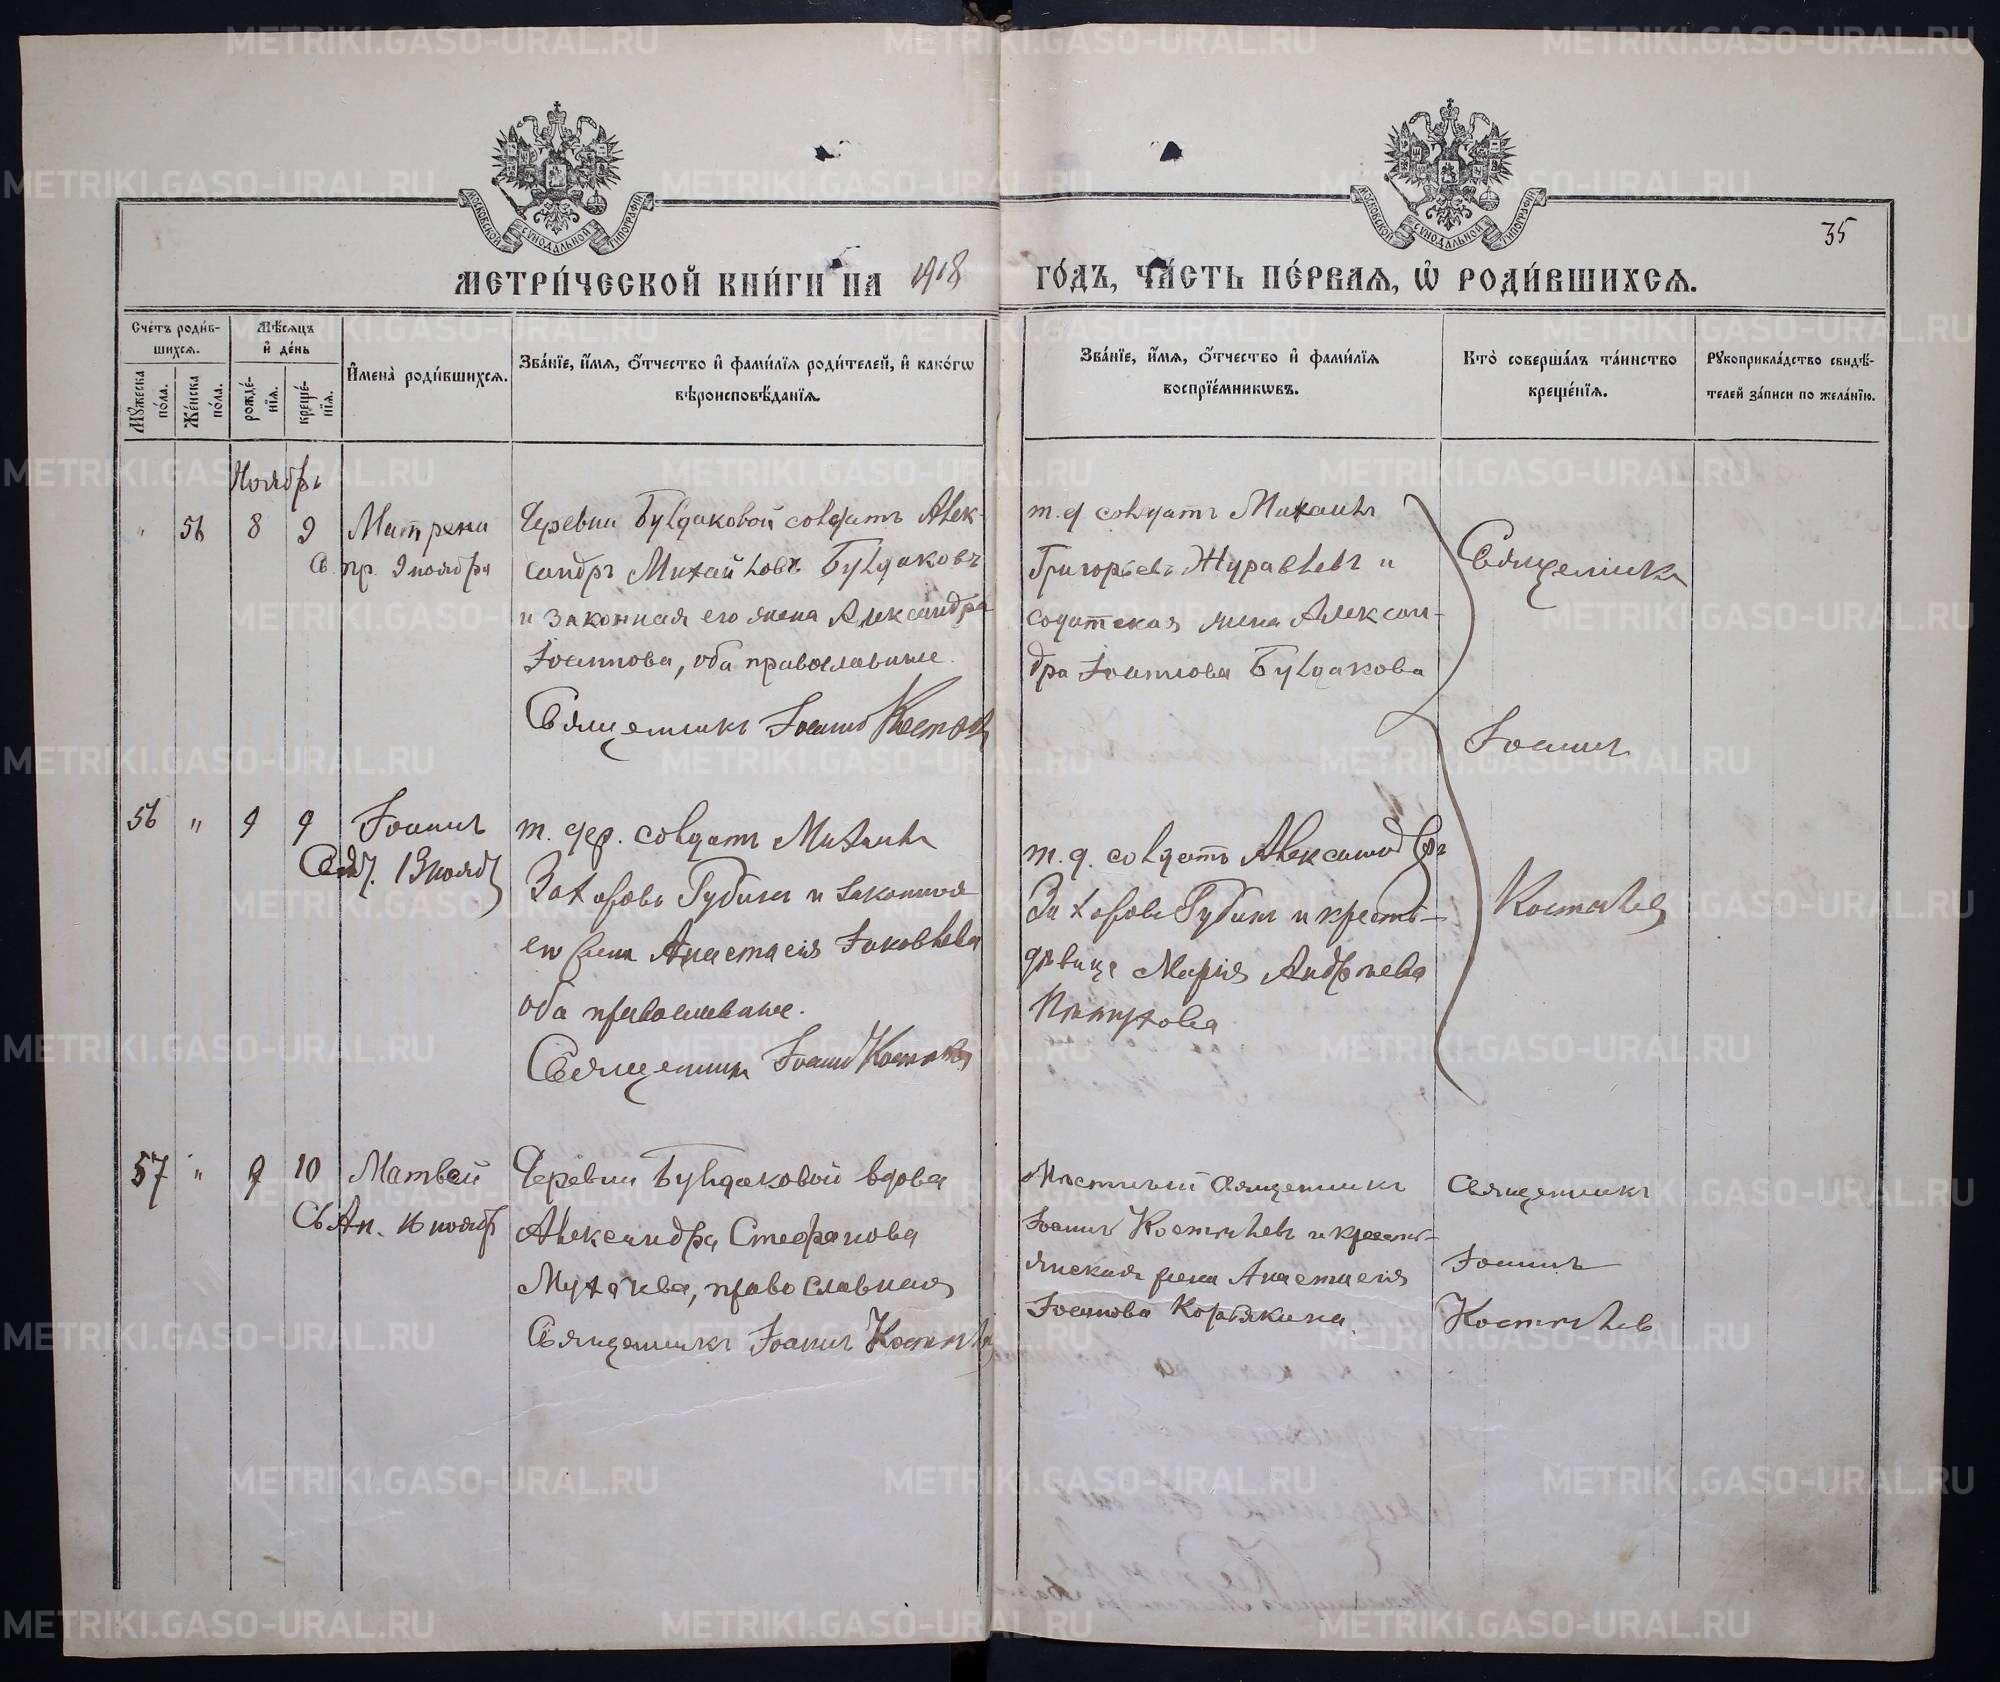 35
МОСКОВСКОЙ СѴНОДАЛЬНОЙ ТИПОГРАФІИ
МОСКОВСКОЙ СѴНОДАЛЬНОЙ ТИПОГРАФІИ
МЕТРИ́ЧЕСКОЙ КНИ́ГИ НА 1918 ГО́ДЪ, ЧА́СТЬ ПЕ́РВАЯ, Ѡ РОДИ́ВШИХСЯ.
Сче́тъ роди́в-
шихся.
Мꙋжеска по́ла.
Же́нска по́ла.
Мѣ́сяцъ и де́нь
рожде́-
нїя.
креще́-
нїя.
Имена̀ роди́вшихся.
Зва́нїе, и́мя, ѻ́тчество и фами́лїя роди́телей, и како́гѡ
вѣроисповѣ́данїя.
Зва́нїе, и́мя, ѻ́тчество и фами́лїя
воспрїе́мникѡвъ.
Кто̀ соверша́лъ та́инство
креще́нїя.
Рꙋкоприкла́дство свидѣ́-
телей за́писи по жела́нїю.
Ноябрь
" 56 8 9 Матрена
Св. пр. 9 ноября
Деревни Булдаковой солдатъ Алек-
сандръ Михайловъ Булдаковъ
и законная его жена Александра
Іоаннова, оба православные.
Священникъ Іоаннъ
т. д. солдатъ Михаилъ
Григорьевъ Журавлевъ и
солдатская жена Алексан-
дра Іоаннова Булдакова
Священникъ
Іоаннъ
56 " 9 9 Іоаннъ
13 нояб
т. дер. солдатъ Михаилъ
Захаровъ Губинъ и законная
его жена Анастасія Іаковлева
оба православные.
Священникъ Іоаннъ
т. д. солдатъ Александръ
Захаровъ Губинъ и крест.
дѣвица Марія Андреева
57 " 9 10 Матвей
Св Ап. 16 нояб
Деревни Булдаковой вдова
Александра Стефанова
православная
Священникъ Іоаннъ
Мѣстный Священникъ
Іоаннъ и кресть-
янская жена Анастасія
Іоаннова Корякина
Священникъ
Іоаннъ
METRIKI.GASO-URAL.RU